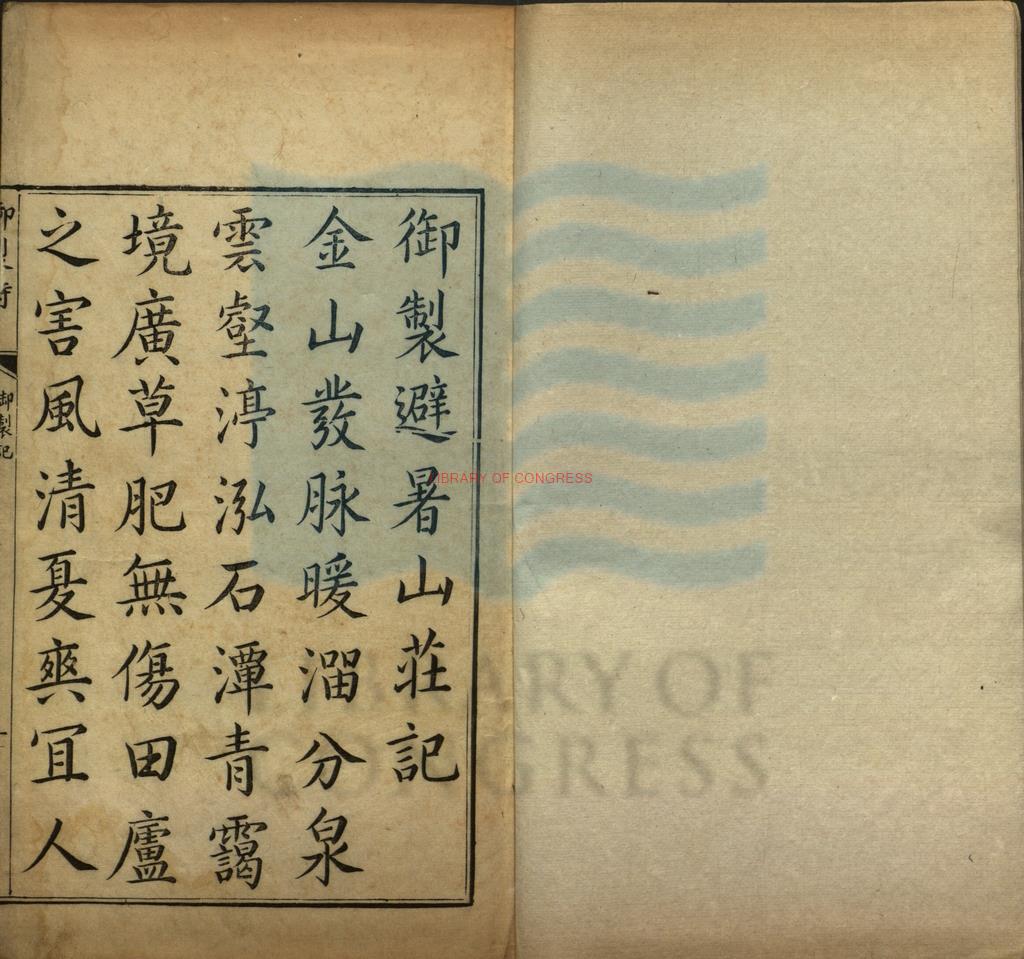 御製避暑山莊記
金山發脉暖溜分泉
雲壑渟泓石潭青靄
境廣草肥無傷田廬
之害風清夏爽冝人
御製記
LIBRARY OF CONGRESS
LIBRARY OF
CONGRESS